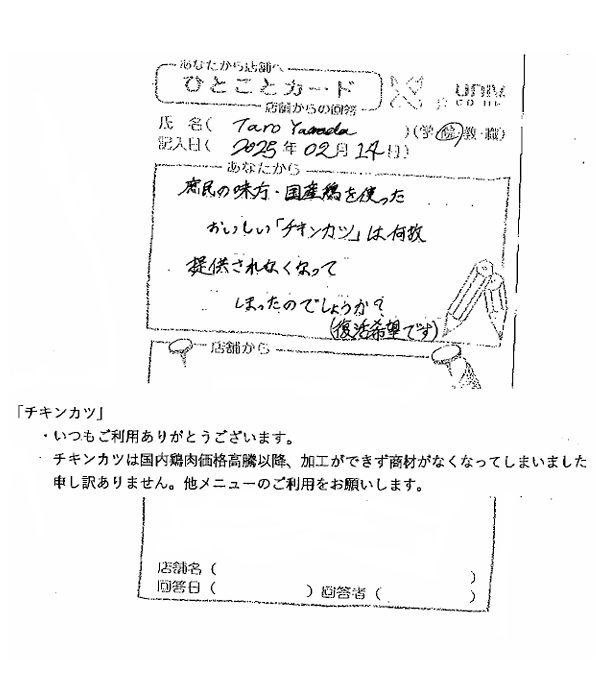 あなたから店舗へ
ひとことカード
店舗からの回答
UNIV.
CO-OP
氏 名( Taro Yamada )(学・院・教・職)
記入日( 2025年02月14日)
あなたから
庶民の味方・国産鶏を使った
おいしい「チキンカツ」は何故
提供されなくなって
しまったのでしょうか?
(復活希望です)
店舗から
「チキンカツ」
・いつもご利用ありがとうございます。
チキンカツは国内鶏肉価格高騰以降、加工ができず商材がなくなってしまいました
申し訳ありません。他メニューのご利用をお願いします。
店舗名( )
回答日( )回答者( )